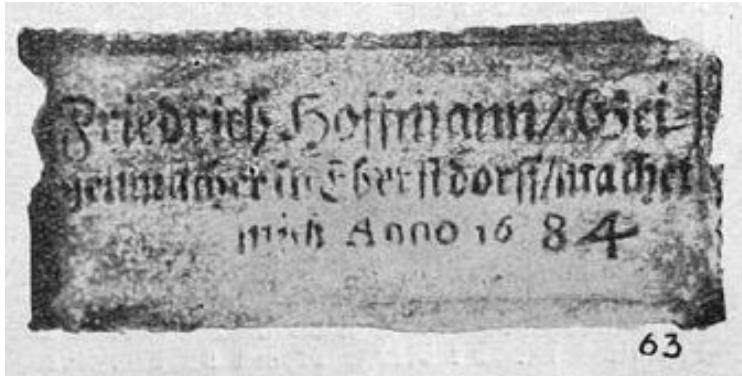 Friedrich Hoffmann/ Gei-
genmacher in Eberstdorff/ machet
mich Anno 16 84
63